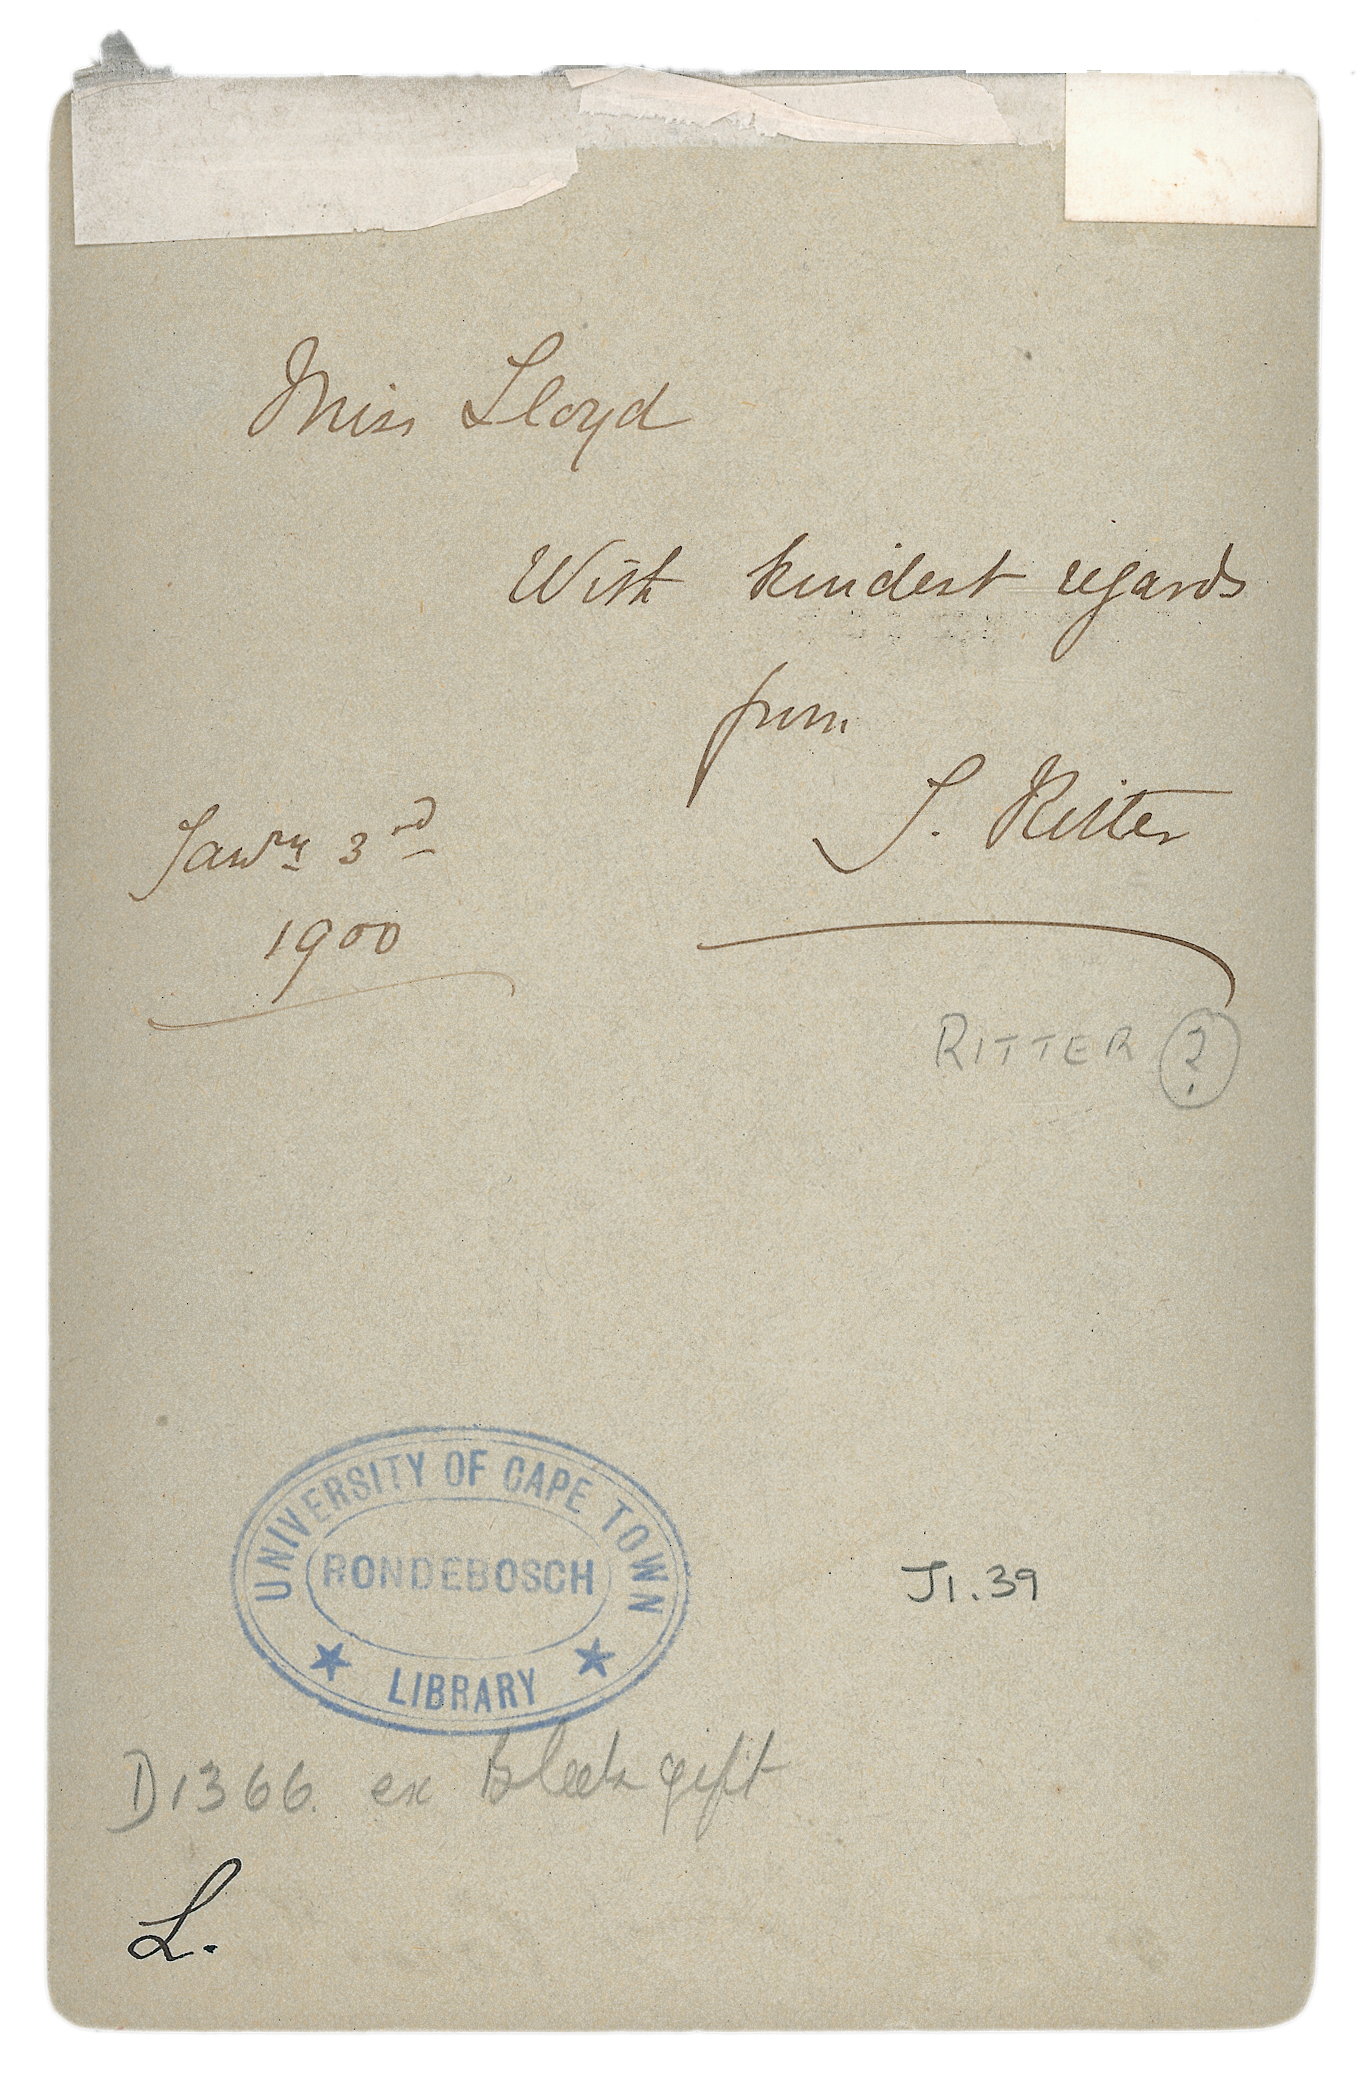 Miss Lloyd
With kindest regards
from
S. Ritter
Janry 3rd
1900
RITTER ?
UNIVERSITY OF CAPE TOWN
RONDEBOSCH
LIBRARY
J1.39
D1366. ex Bleek gift
L.